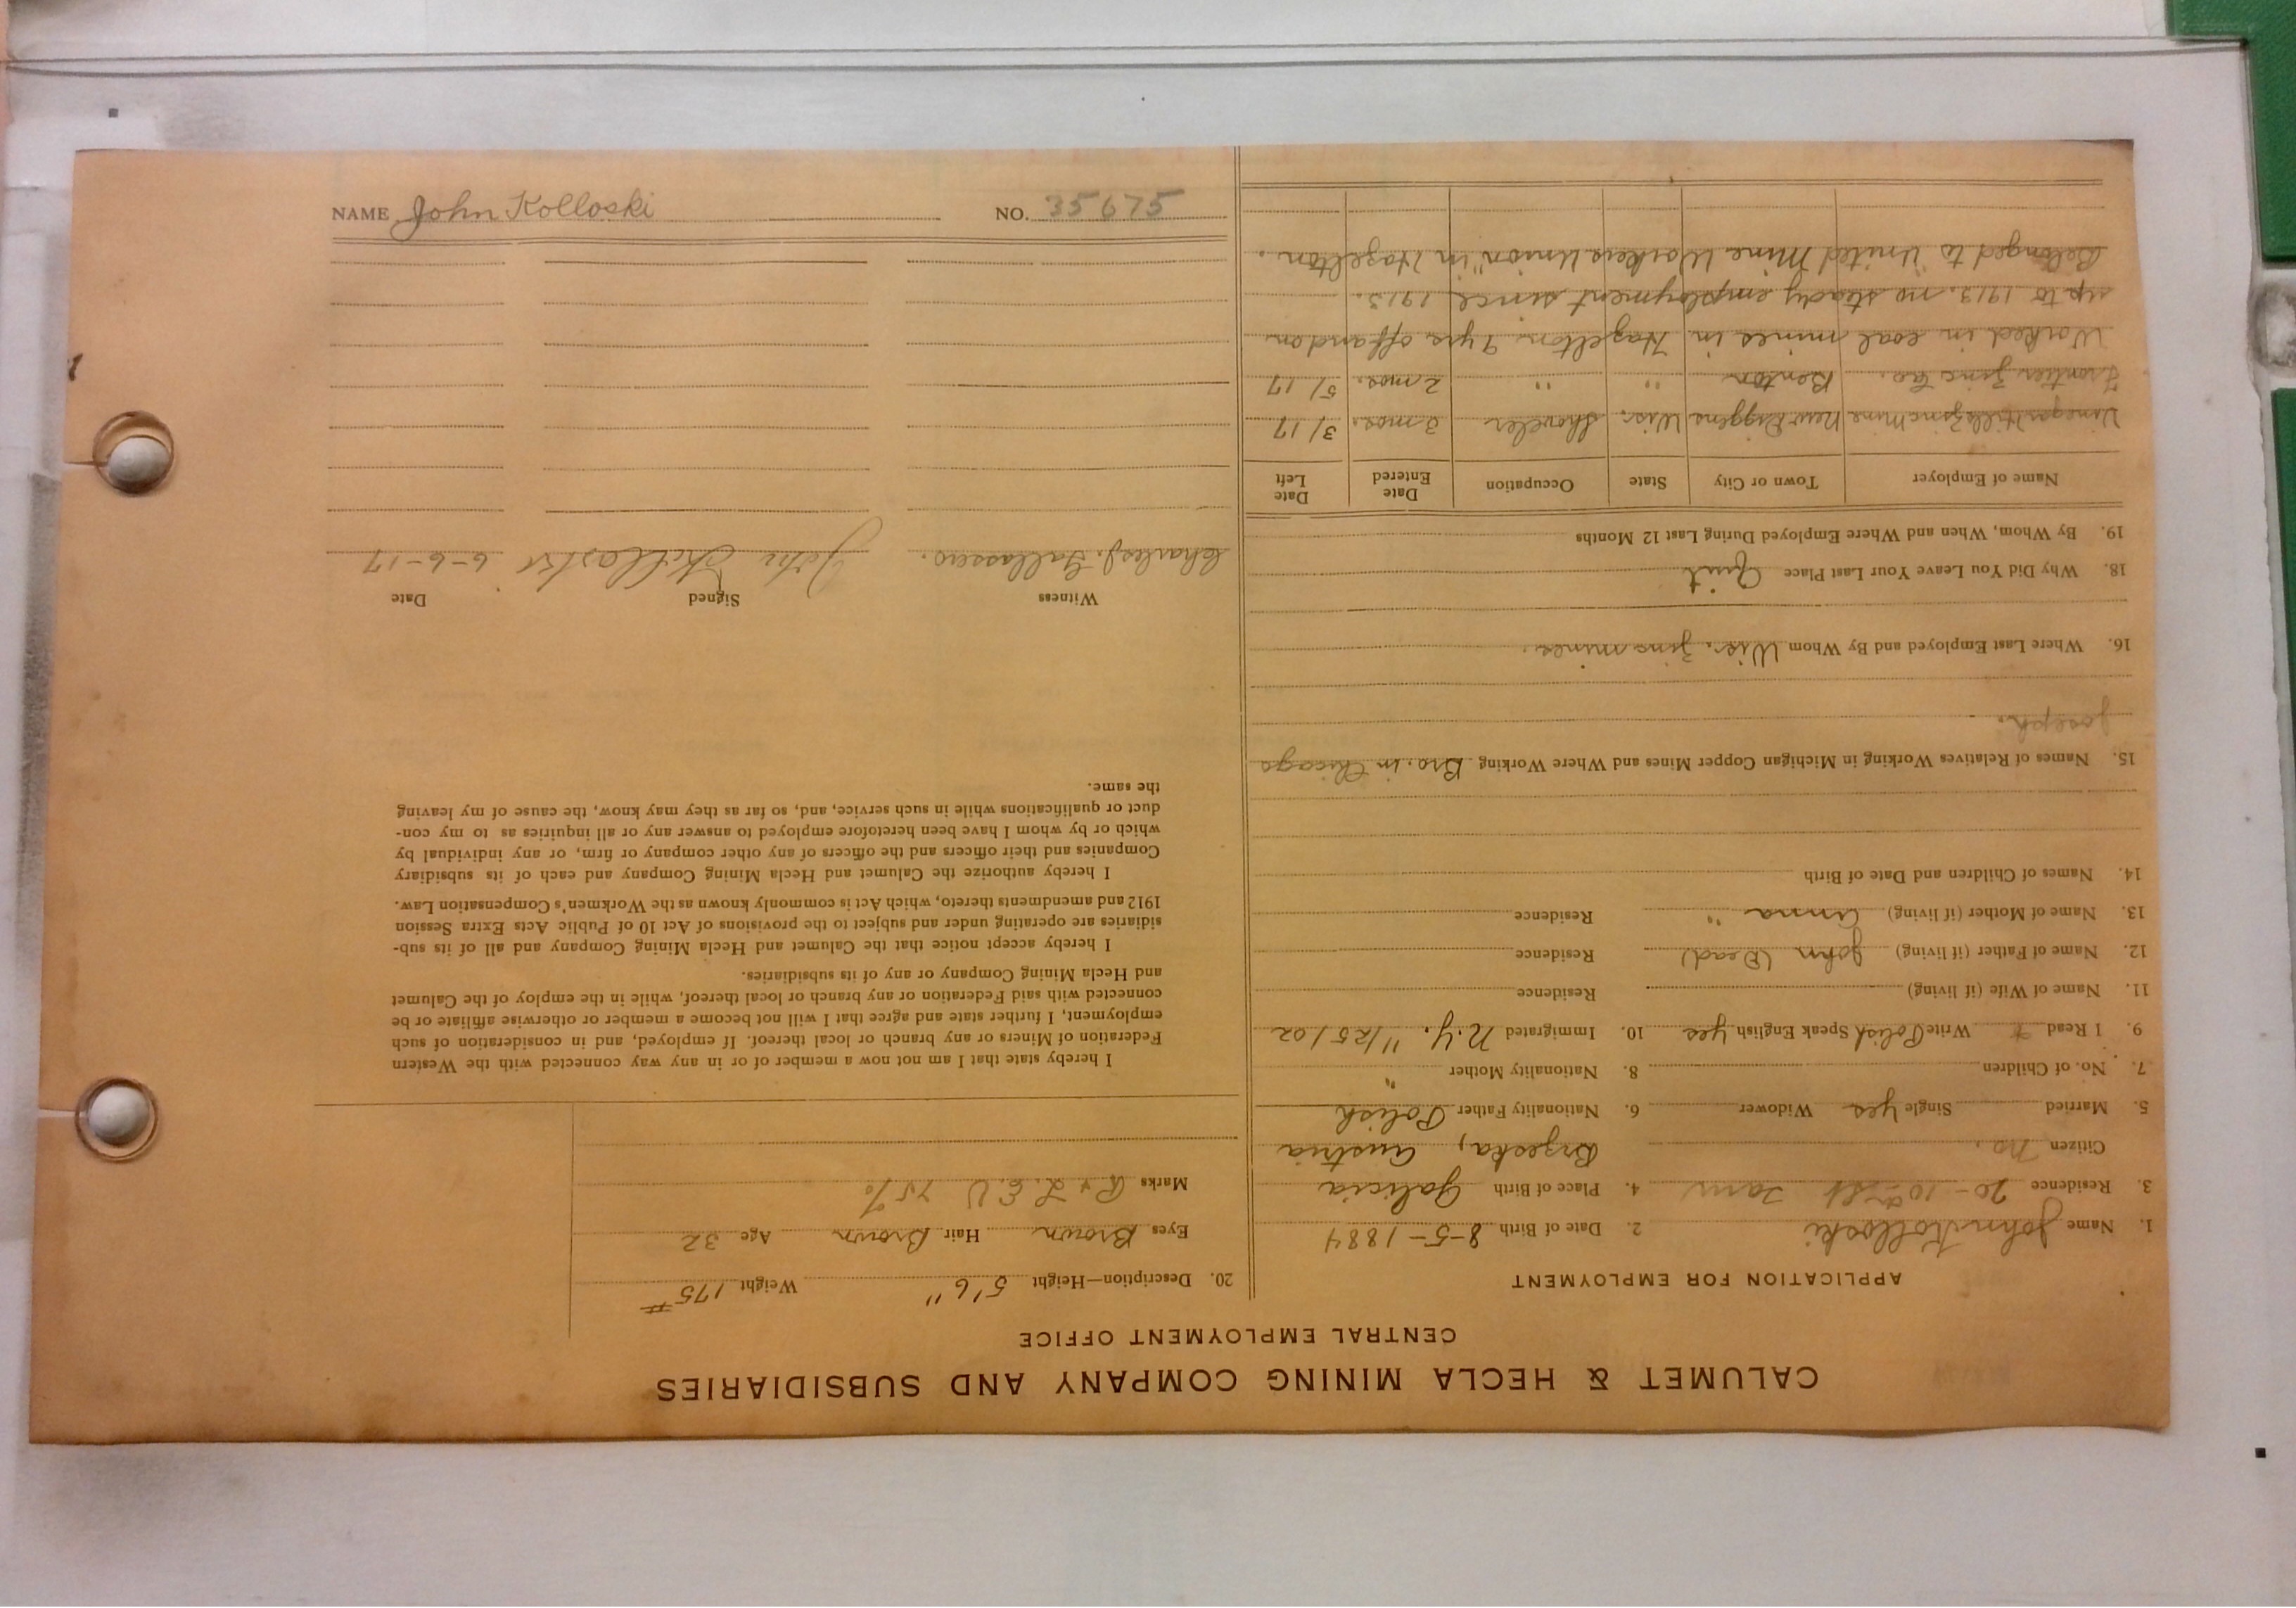 CALUMET & HECLA MINING COMPANY AND SUBSIDIARIES
CENTRAL EMPLOYMENT OFFICE
APPLICATION FOR EMPLOYMENT
1. Name John Kolloski 2. Date of Birth 8-5-1884
3. Residence 70-10 St 4. Place of Birth Galicia
Citizen no. Brzeska, Austria
5. Married Single Yes Widower 6. Nationality Father Polish
7. No. of Children 8. Nationality Mother "
9. I Read + Write Polish Speak English yes 10. Immigrated N.Y. 11/25/02
11. Name of Wife (if living) Residence
12. Name of Father (if living) John (Dead) Residence
13. Name of Mother (if living) Anna " Residence
14. Names of Children and Date of Birth
15. Names of Relatives Working in Michigan Copper Mines and Where Working Bro. in Chicago
Joseph.
16. Where Last Employed and By Whom Wis. zinc mines.
18. Why Did You Leave Your Last Place Quit
19. By Whom, When and Where Employed During Last 12 Months
Name of Employer Town or City State Occupation Date Entered Date Left
Vinegar Hill Zinc Mine New Diggens Wis. Shoveler 3 mos. 3/17
Frontier Zinc Co. Benton " " 2 mos. 5/17
Worked in coal mines in Hazelton 9 yrs off and on
up to 1913. no steady employment since 1913.
Belonged to "United Mine Workers Union" in Hazelton.
20. Description—Height 5'6" Weight 175 #
Eyes Brown Hair Brown Age 32
Marks R + L. E. V 75%
I hereby state that I am not now a member of or in any way connected with the Western
Federation of Miners or any branch or local thereof. If employed, and in consideration of such
employment, I further state and agree that I will not become a member or otherwise affiliate or be
connected with said Federation or any branch or local thereof, while in the employ of the Calumet
and Hecla Mining Company or any of its subsidiaries.
I hereby accept notice that the Calumet and Hecla Mining Company and all of its sub-
sidiaries are operating under and subject to the provisions of Act 10 of Public Acts Extra Session
1912 and amendments thereto, which Act is commonly known as the Workmen's Compensation Law.
I hereby authorize the Calumet and Hecla Mining Company and each of its subsidiary
Companies and their officers and the officers of any other company or firm, or any individual by
which or by whom I have been heretofore employed to answer any or all inquiries as to my con-
duct or qualifications while in such service, and, so far as they may know, the cause of my leaving
the same.
Witness Signed Date
Charles J. John 6-6-17
NAME John Kolloski NO. 35675